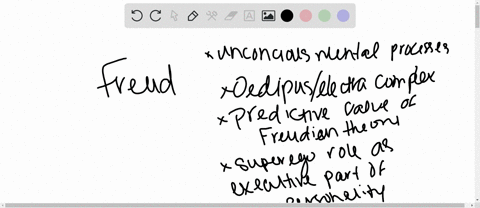 Freud
* unconcious mental processes
* Oedipus/electra complex
* predictive value of
Freudian theory
* superego role as
executive part of
personality